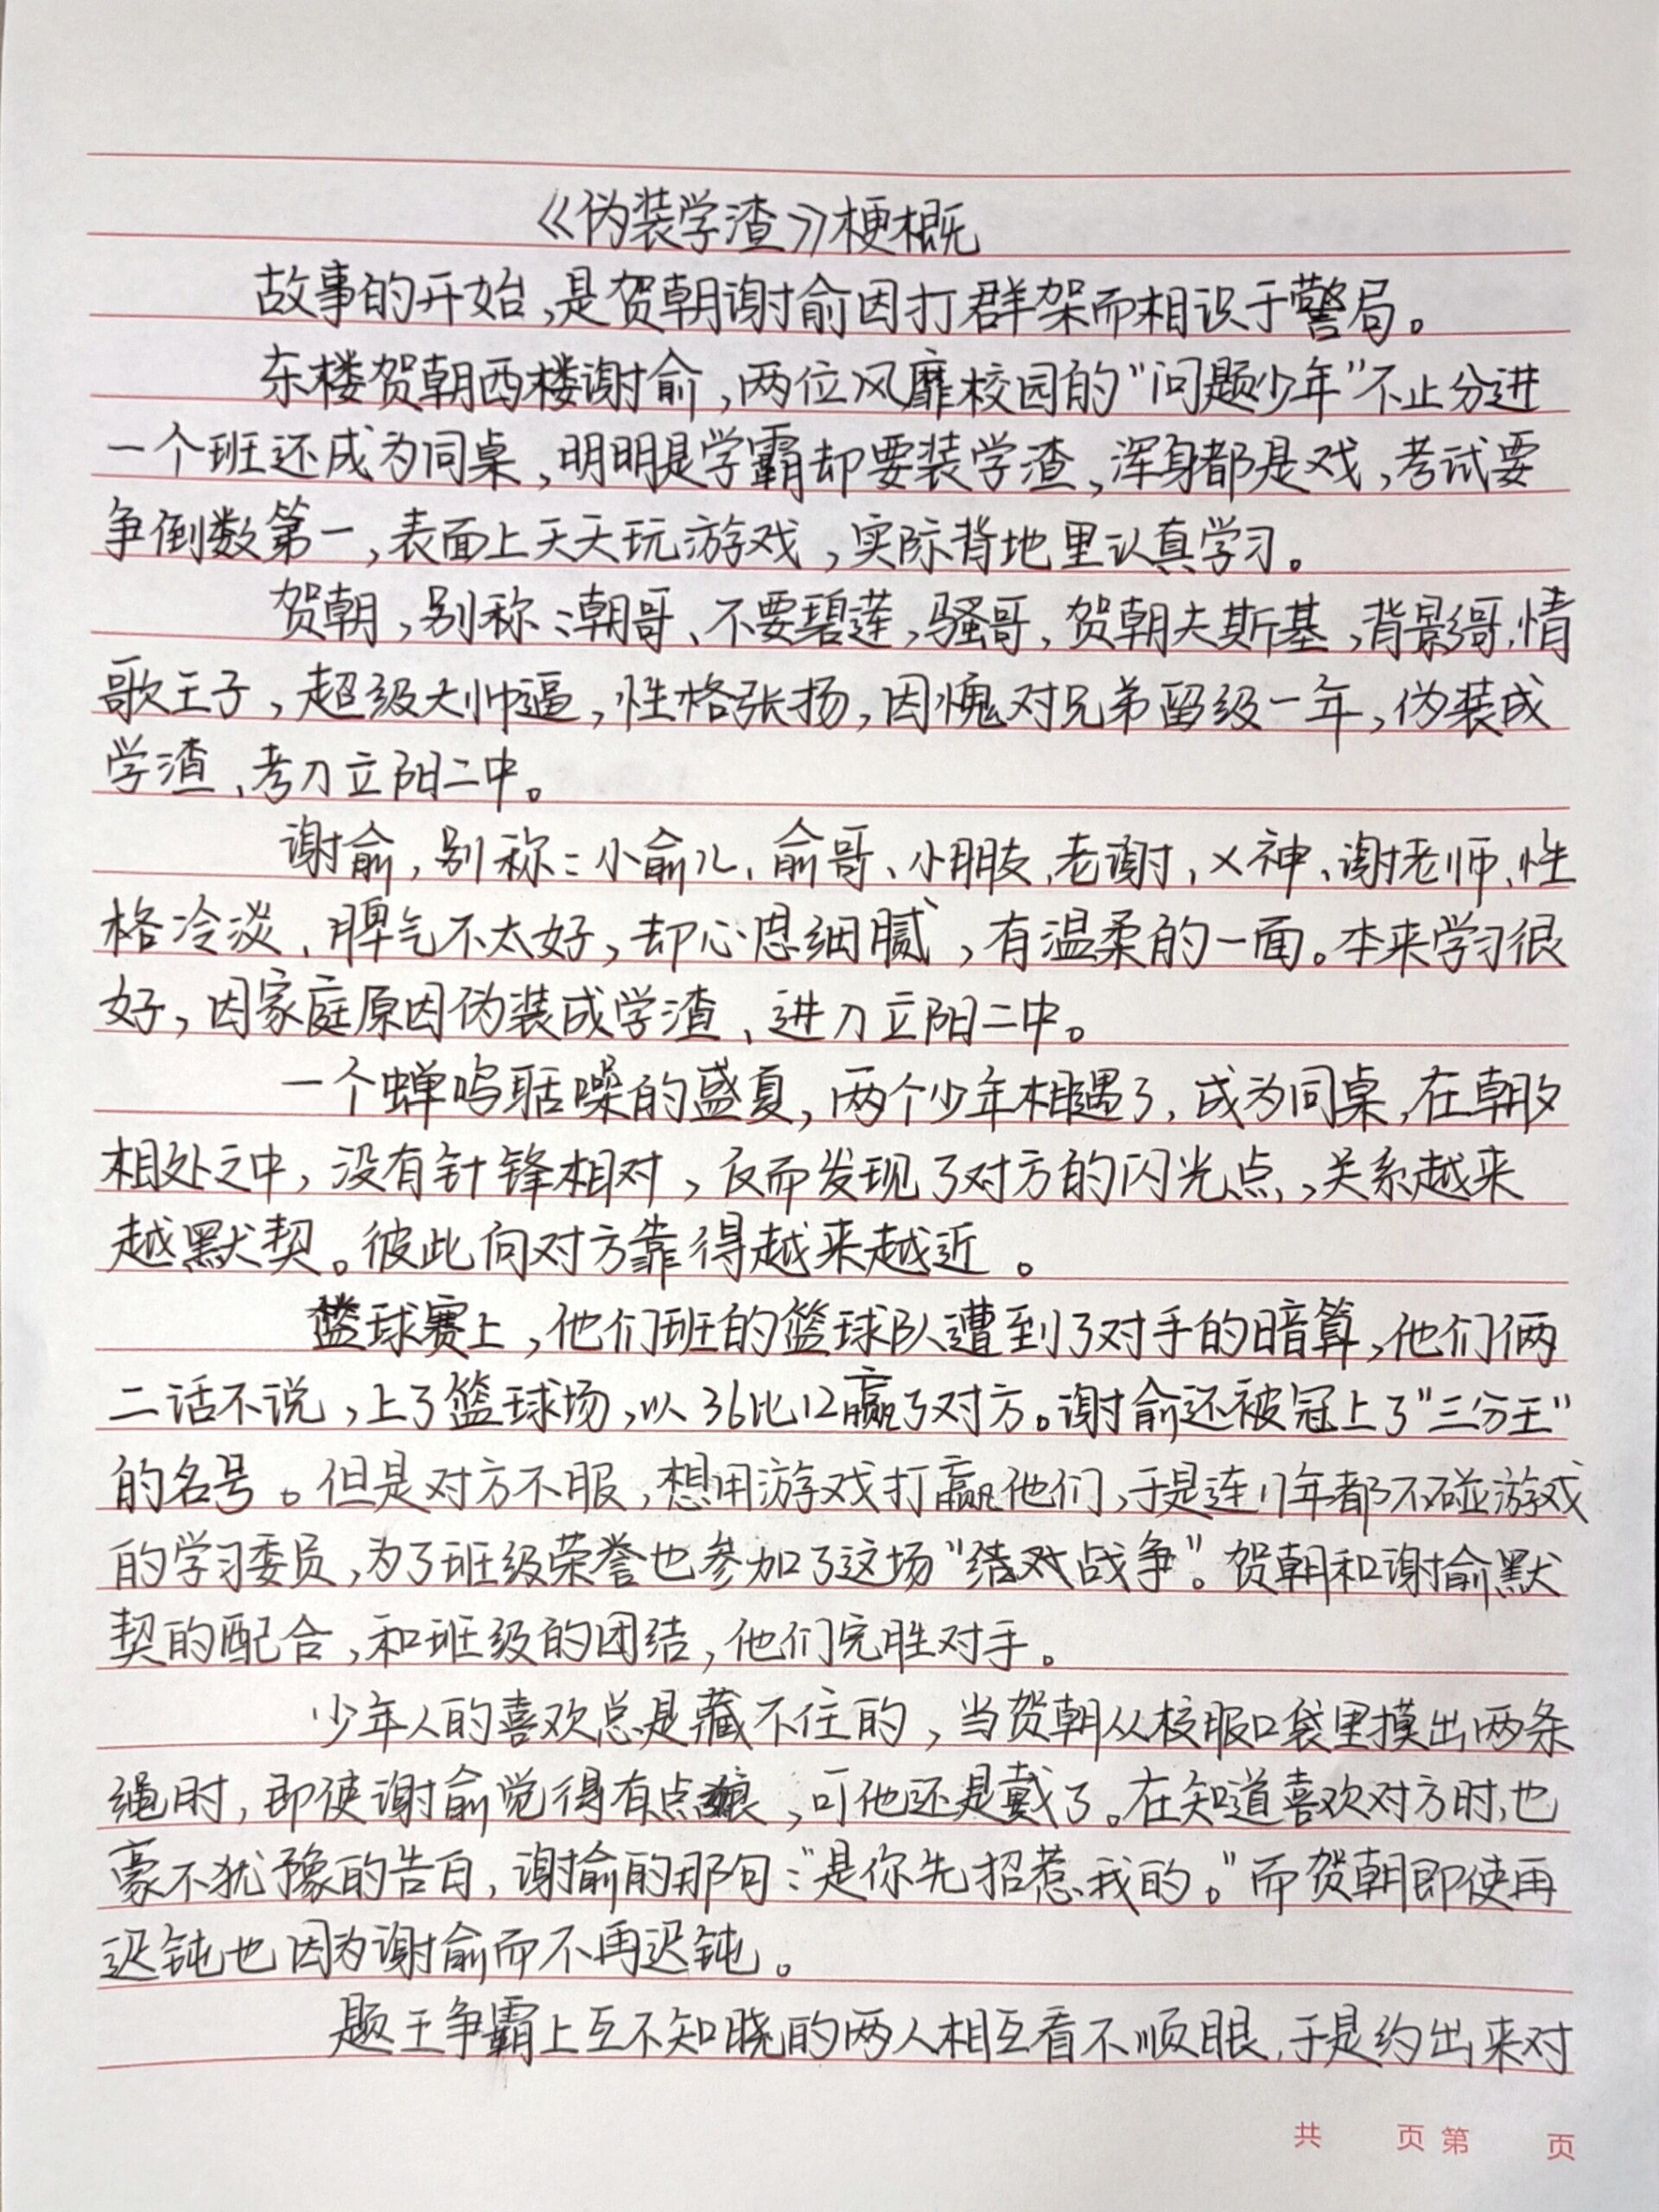 《伪装学渣》梗概
故事的开始,是贺朝谢俞因打群架而相识于警局。
东楼贺朝西楼谢俞,两位风靡校园的“问题少年”不止分进
一个班还成为同桌,明明是学霸却要装学渣,浑身都是戏,考试要
争倒数第一,表面上天天玩游戏,实际背地里认真学习。
贺朝,别称:朝哥、不要碧莲,骚哥,贺朝夫斯基,背影哥,情
歌王子,超级大帅逼,性格张扬,因愧对兄弟留级一年,伪装成
学渣、考入立阳二中。
谢俞,别称:小俞儿、俞哥、小朋友、老谢、X神、谢老师、性
格冷淡、脾气不太好,却心思细腻,有温柔的一面。本来学习很
好,因家庭原因伪装成学渣、进入立阳二中。
一个蝉鸣聒噪的盛夏,两个少年相遇了,成为同桌,在朝夕
相处之中,没有针锋相对,反而发现了对方的闪光点,关系越来
越默契。彼此向对方靠得越来越近。
篮球赛上,他们班的篮球队遭到了对手的暗算,他们俩
二话不说,上了篮球场,以36比12赢了对方。谢俞还被冠上了“三分王”
的名号。但是对方不服,想用游戏打赢他们,于是连17年都不碰游戏
的学习委员,为了班级荣誉也参加了这场“结对战争”。贺朝和谢俞默
契的配合,和班级的团结,他们完胜对手。
少年人的喜欢总是藏不住的,当贺朝从校服口袋里摸出两条
绳时,即使谢俞觉得有点娘,可他还是戴了。在知道喜欢对方时,也
豪不犹豫的告白,谢俞的那句:“是你先招惹我的。”而贺朝即使再
迟钝也因为谢俞而不再迟钝。
题王争霸上互不知晓的两人相互看不顺眼,于是约出来对
共 页 第 页